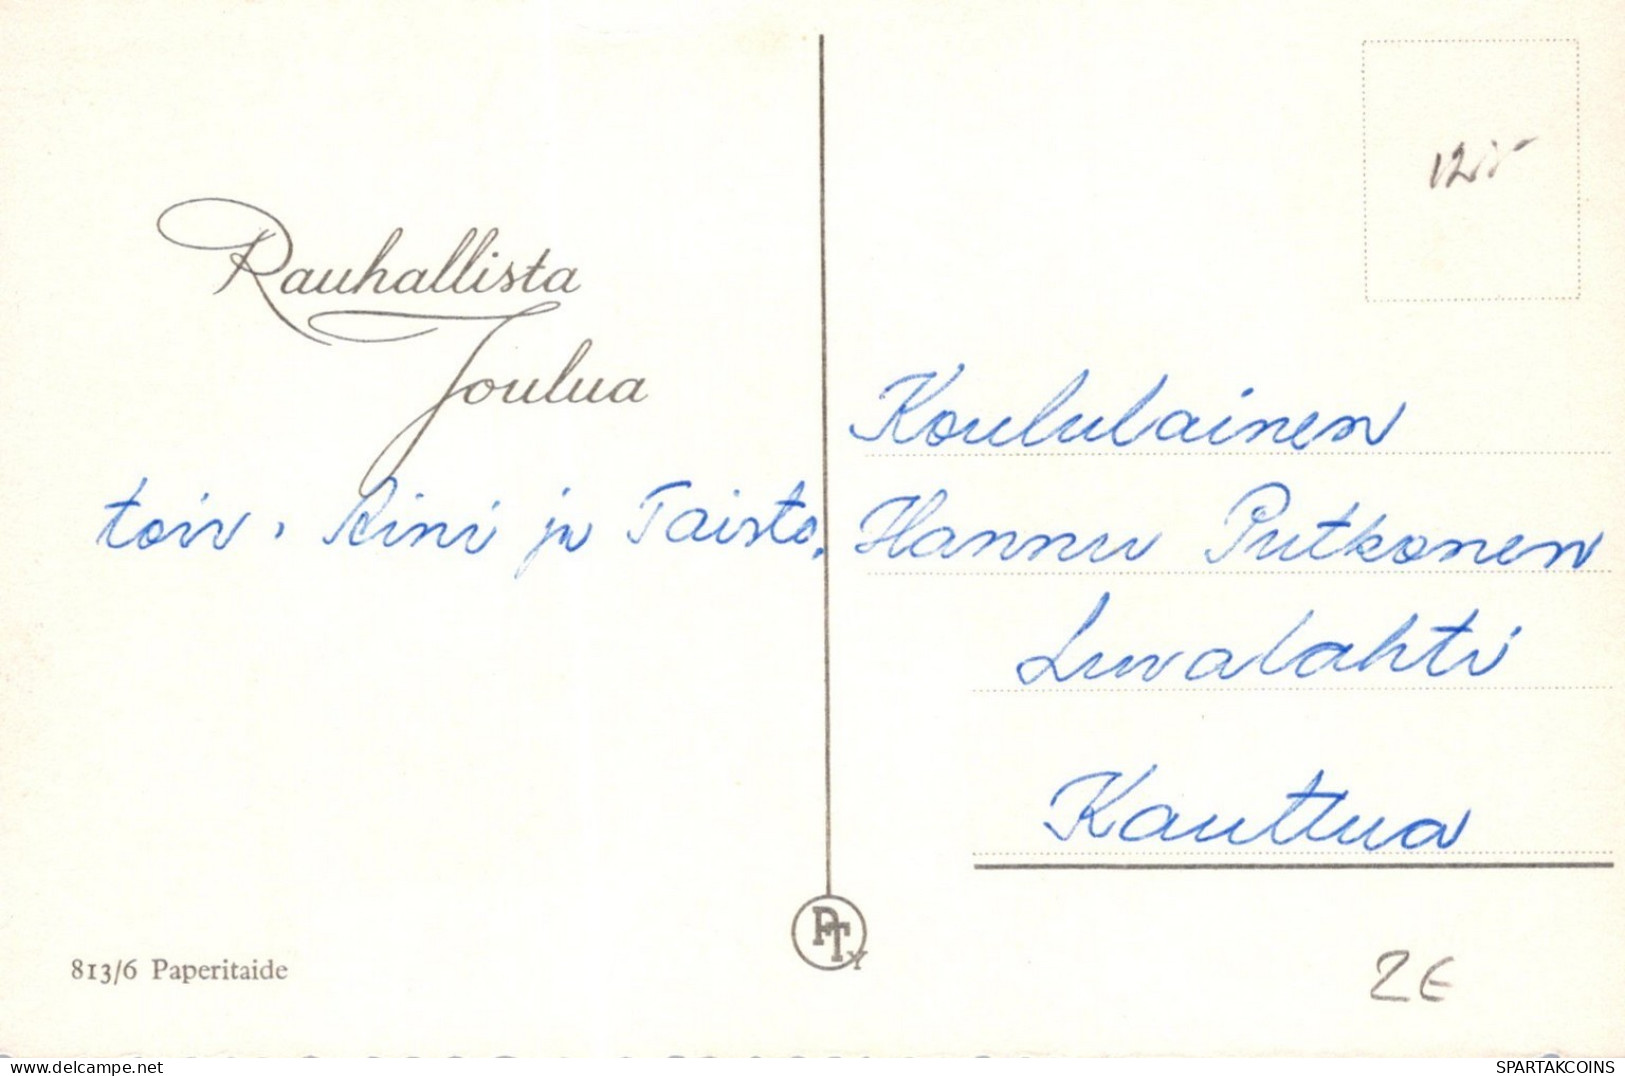 Rauhallista
Joulua
toiv. Aini ja Taisto.
Koululainen
Hannu Putkonen
Luvalahti
Kauttua
PT
813/6 Paperitaide
2€
Ak-ansichtskarte.de
SPARTAKCOINS